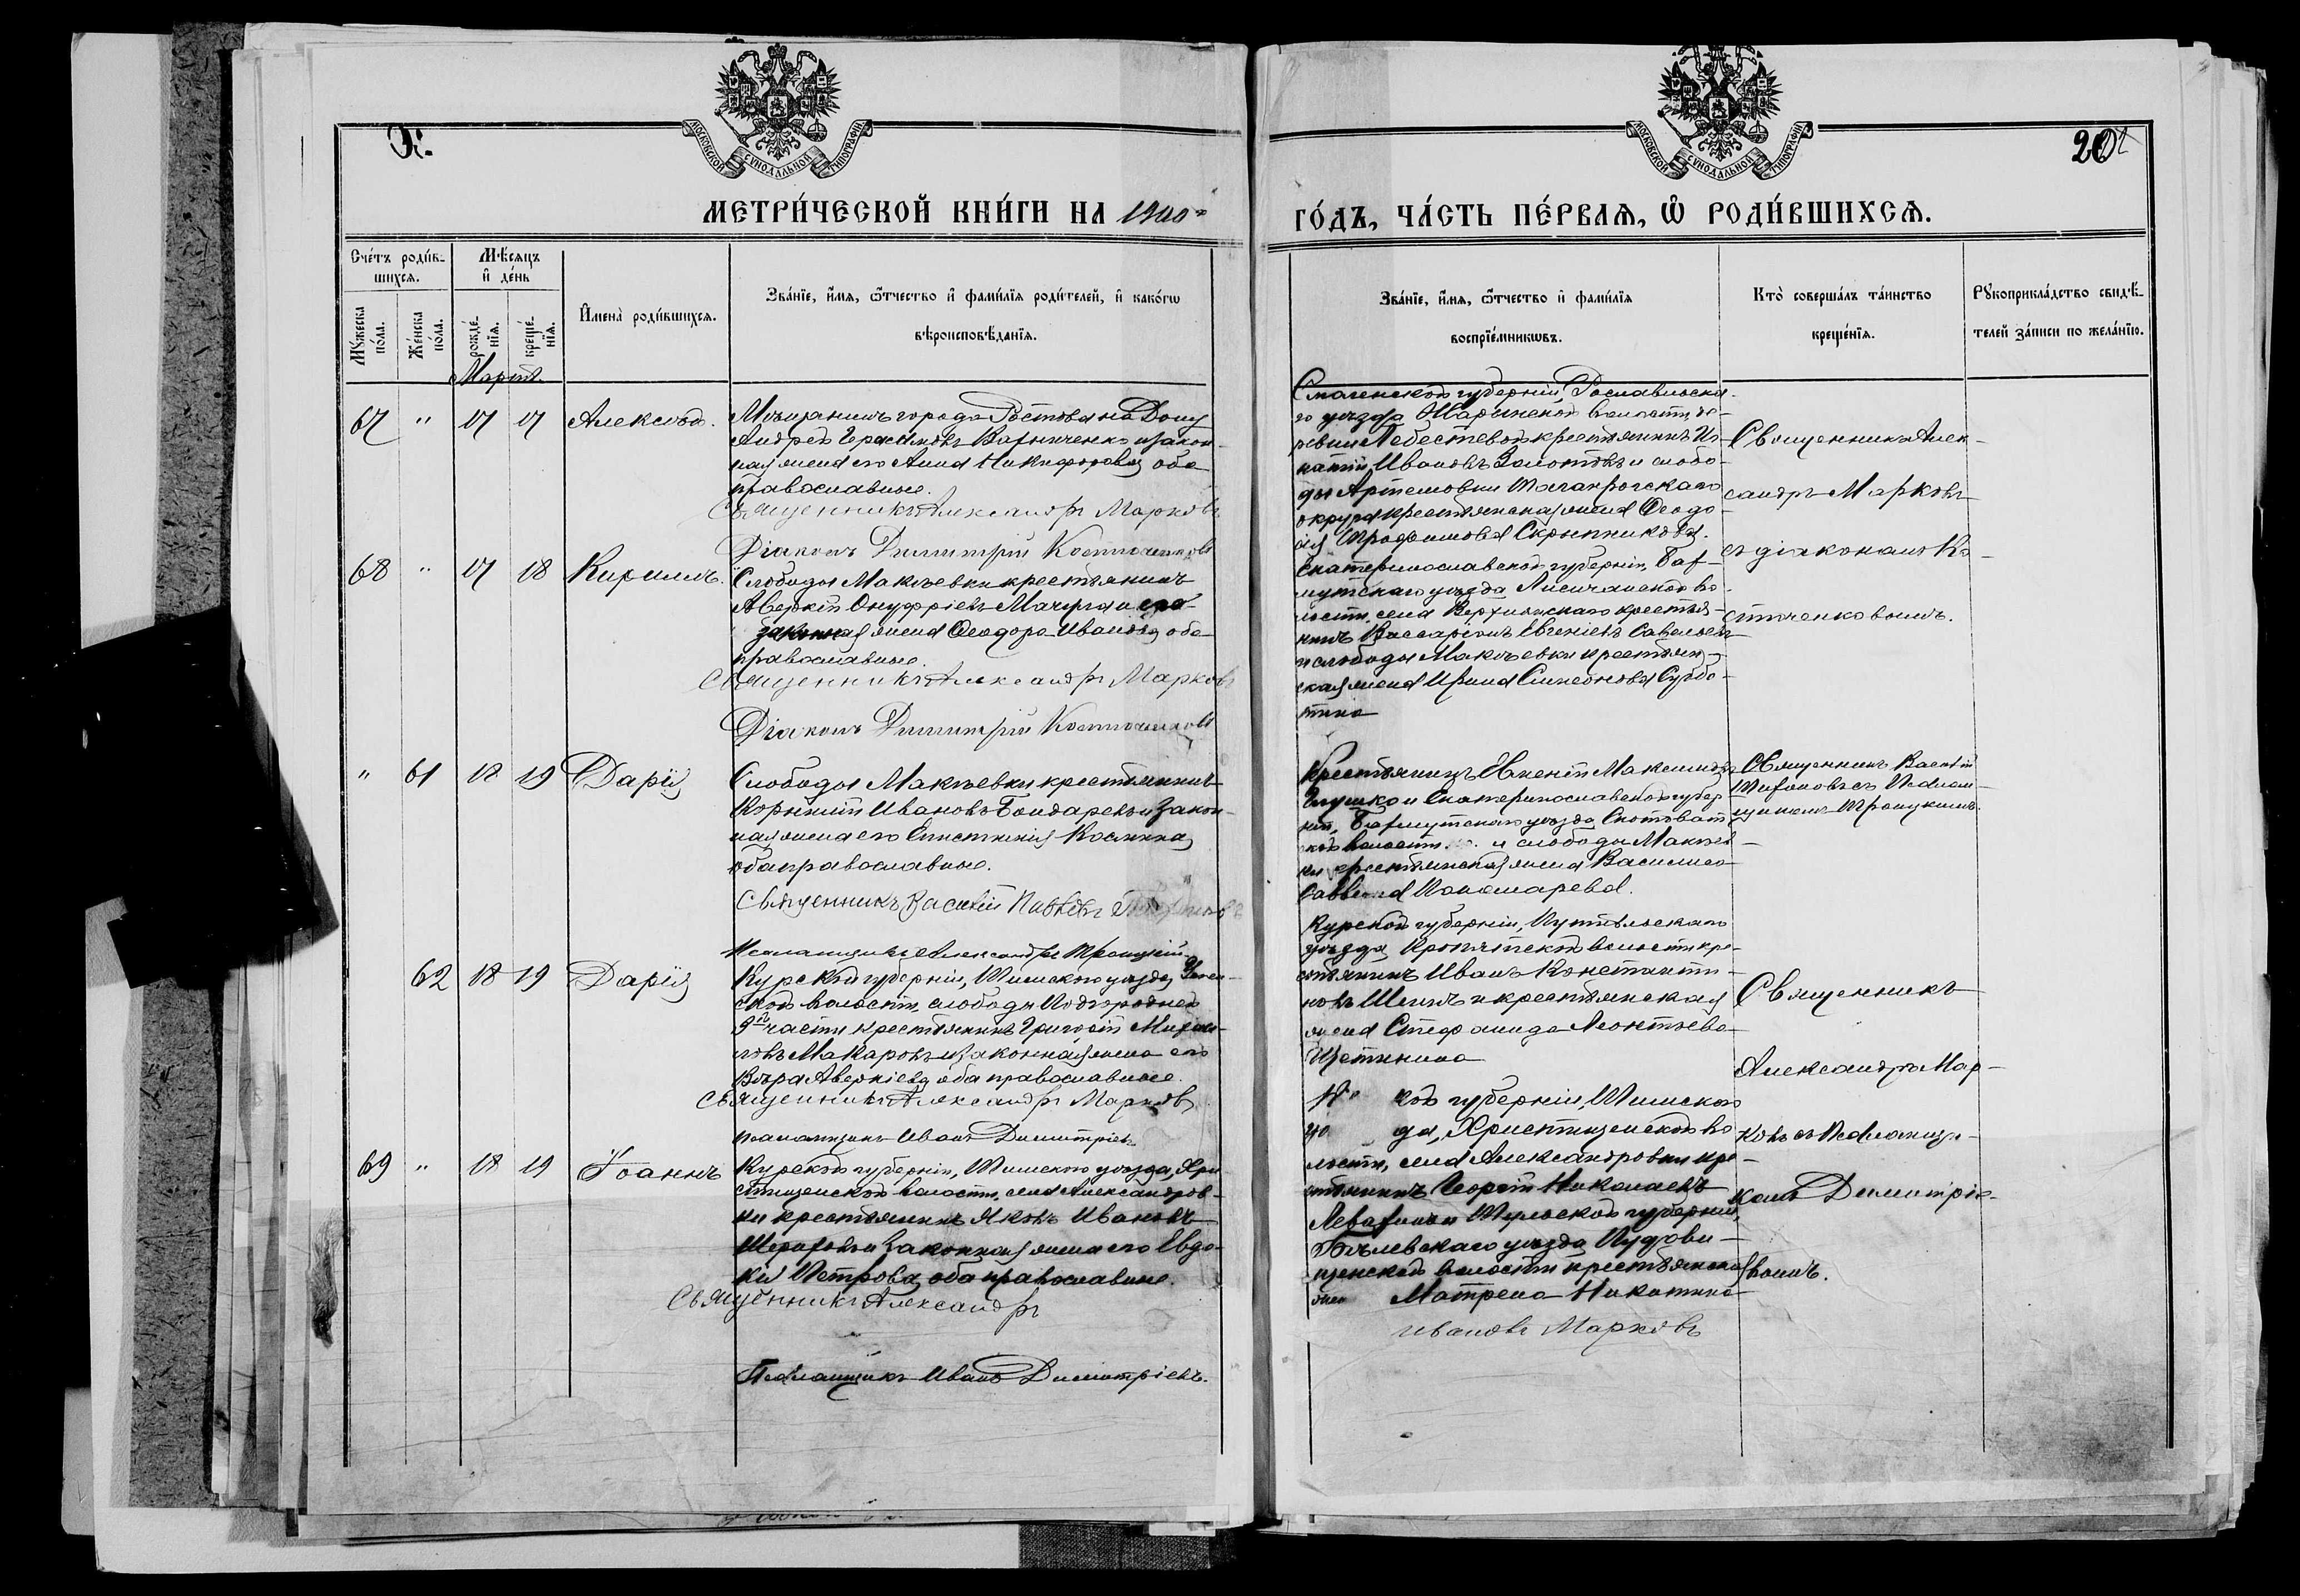 20
МОСКОВСКОЙ СѴНОДАЛЬНОЙ ТИПОГРАФІИ
МОСКОВСКОЙ СѴНОДАЛЬНОЙ ТИПОГРАФІИ
МЕТРИ́ЧЕСКОЙ КНИ́ГИ НА 1900
ГО́ДЪ, ЧА́СТЬ ПЕ́РВАѦ, Ѡ҆ РОДИ́ВШИХСѦ.
Сче́тъ роди́в-
шихсѧ.
Мꙋ́жеска по́ла.
Же́нска по́ла.
Мѣ́сѧцъ и҆ де́нь
рожде́-нїѧ.
креще́-нїѧ.
И҆мена̀ роди́вшихсѧ.
Зва́нїе, и҆́мѧ, ѻ҆́тчество и҆ фами́лїѧ роди́телей, и҆ како́гѡ
вѣроисповѣ́данїѧ.
Зва́нїе, и҆́мѧ, ѻ҆́тчество и҆ фами́лїѧ
воспрїе́мникѡвъ.
Кто̀ соверша́лъ та́инство
креще́нїѧ.
Рꙋкоприкла́дство свидѣ́-
телей за́писи по жела́нїю.
Мартъ.
67 " 17 17 Алексѣй.
Мѣщанинъ города Ростова на Дону
Андрей Герасимовъ и закон-
ная жена его Анна Никифорова, оба
православные.
Священникъ Александръ Марковъ
Діаконъ Димитрій
Смоленской губерніи, Рославльска-
го уѣзда волости, де-
ревни крестьянинъ Иг-
натій Ивановъ Золотовъ и слобо-
ды Артемовки Таганрогскаго
округа крестьянская жена Ѳеодо-
сія Трофимова Скрынникова.
Священникъ Алек-
сандръ Марковъ
съ діакономъ Ко-
68 " 17 18 Кириллъ.
Слободы Макѣевки крестьянинъ
Аверкій Онуфріевъ и его
законная жена Ѳеодора Иванова, оба
православные.
Священникъ Александръ Марковъ
Діаконъ Димитрій
Екатеринославской губерніи, Бах-
мутскаго уѣзда Лисичанской во-
лости, села Верхнянскаго крестья-
нинъ Виссаріонъ Евгеніевъ Савельевъ
и слободы Макѣевки крестьян-
ская жена Ирина Симеонова Суббо-
тина
" 61 18 19 Дарія
Слободы Макѣевки крестьянинъ
Корнилій Ивановъ Бондаревъ и закон-
ная жена его Епистимія Космина,
оба православные.
Священникъ Василій Павловъ
Псаломщикъ Александръ Троицкій
Крестьянинъ Евгеній Максимовъ
Глушко и Екатеринославской губер-
ніи, Бахмутскаго уѣзда Скотоват-
ской волости и слободы Макѣев-
ки крестьянская жена Василиса
Саввина Пономарева.
Священникъ Василій
Тихоновъ съ Псалом-
щикомъ Троицкимъ.
62 18 19 Дарія
Курской губерніи, Тимскаго уѣзда,
ской волости, слободы Подгородней
части крестьянинъ Григорій Михаи-
ловъ Макаровъ и законная жена его
Вѣра Аверкіева, оба православные.
Священникъ Александръ Марковъ
Псаломщикъ Иванъ Димитріевъ
Курской губерніи, Путивльскаго
уѣзда волости кре-
стьянинъ Иванъ Константи-
новъ и крестьянская
жена Стефанида Леонтьева
Щетинина
Священникъ
Александръ Мар-
69 " 18 19 Іоаннъ
Курской губерніи, Тимскаго уѣзда, Хри-
стищенской волости, села Александров-
ки крестьянинъ Яковъ Ивановъ
и законная жена его Евдо-
кія Петрова, оба православные.
Священникъ Александръ
Псаломщикъ Иванъ Димитріевъ.
губерніи, Тимскаго
да, Христищенской во-
лости, села Александровки кре-
стьянинъ Георгій Николаевъ
и Тульской губерніи,
Бѣлевскаго уѣзда
волости крестьянская
Матрена Никитина
Ивановъ Марковъ
ковъ съ Псаломщи-
комъ Димитріе-
вымъ.